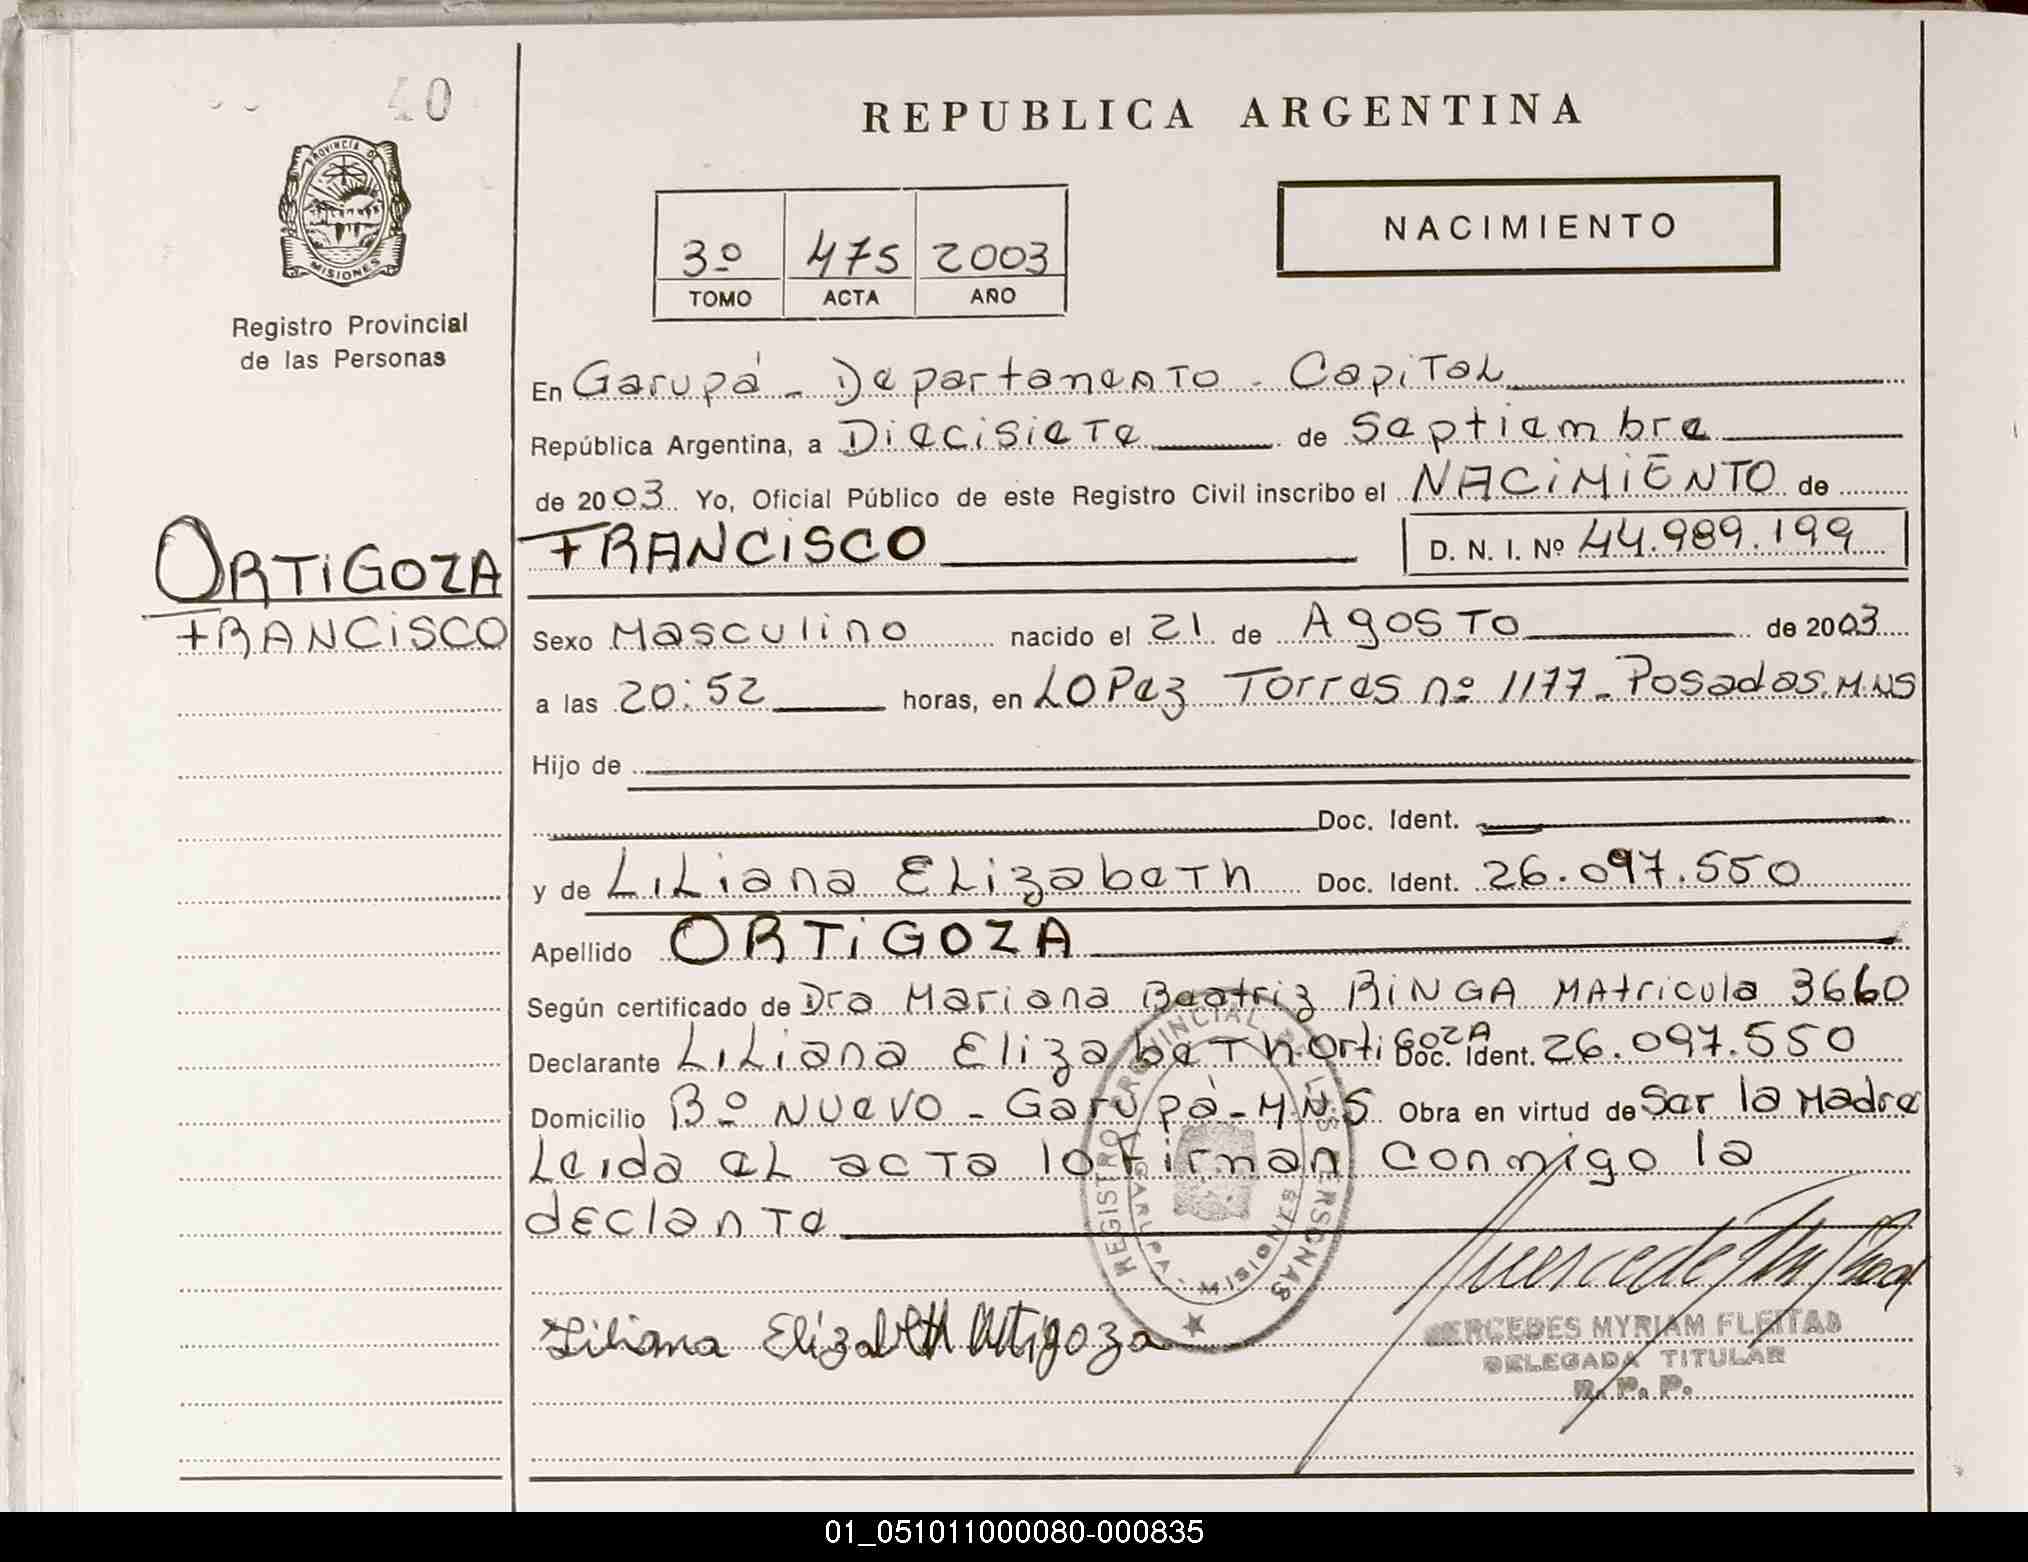 40
PROVINCIA D
MISIONES
Registro Provincial
de las Personas
ORTIGOZA
FRANCISCO
REPUBLICA ARGENTINA
3º 475 2003
TOMO ACTA AÑO
NACIMIENTO
En Garupá - Departamento - Capital
República Argentina, a Diecisiete de Septiembre
de 2003 Yo, Oficial Público de este Registro Civil inscribo el NACIMIENTO de
FRANCISCO D. N. I. Nº 44.989.199
Sexo Masculino nacido el 21 de Agosto de 2003
a las 20:52 horas, en LOPez Torres nº 1177 - Posadas. MNS
Hijo de
Doc. Ident.
y de Liliana Elizabeth Doc. Ident. 26.097.550
Apellido ORTIGOZA
Según certificado de Dra Mariana Beatriz RINGA MAtricula 3660
Declarante Liliana Elizabeth Ortigoza Doc. Ident. 26.097.550
Domicilio Bº Nuevo - Garupá - M.N.S Obra en virtud de Ser la Madre
Leida el acta lo firman conmigo la
declante
REGISTRO PROVINCIAL DE LAS PERSONAS
GARUPA - MISIONES
Liliana Elizabeth Ortigoza
MERCEDES MYRIAM FLEITAS
DELEGADA TITULAR
R. P. P.
01_051011000080-000835